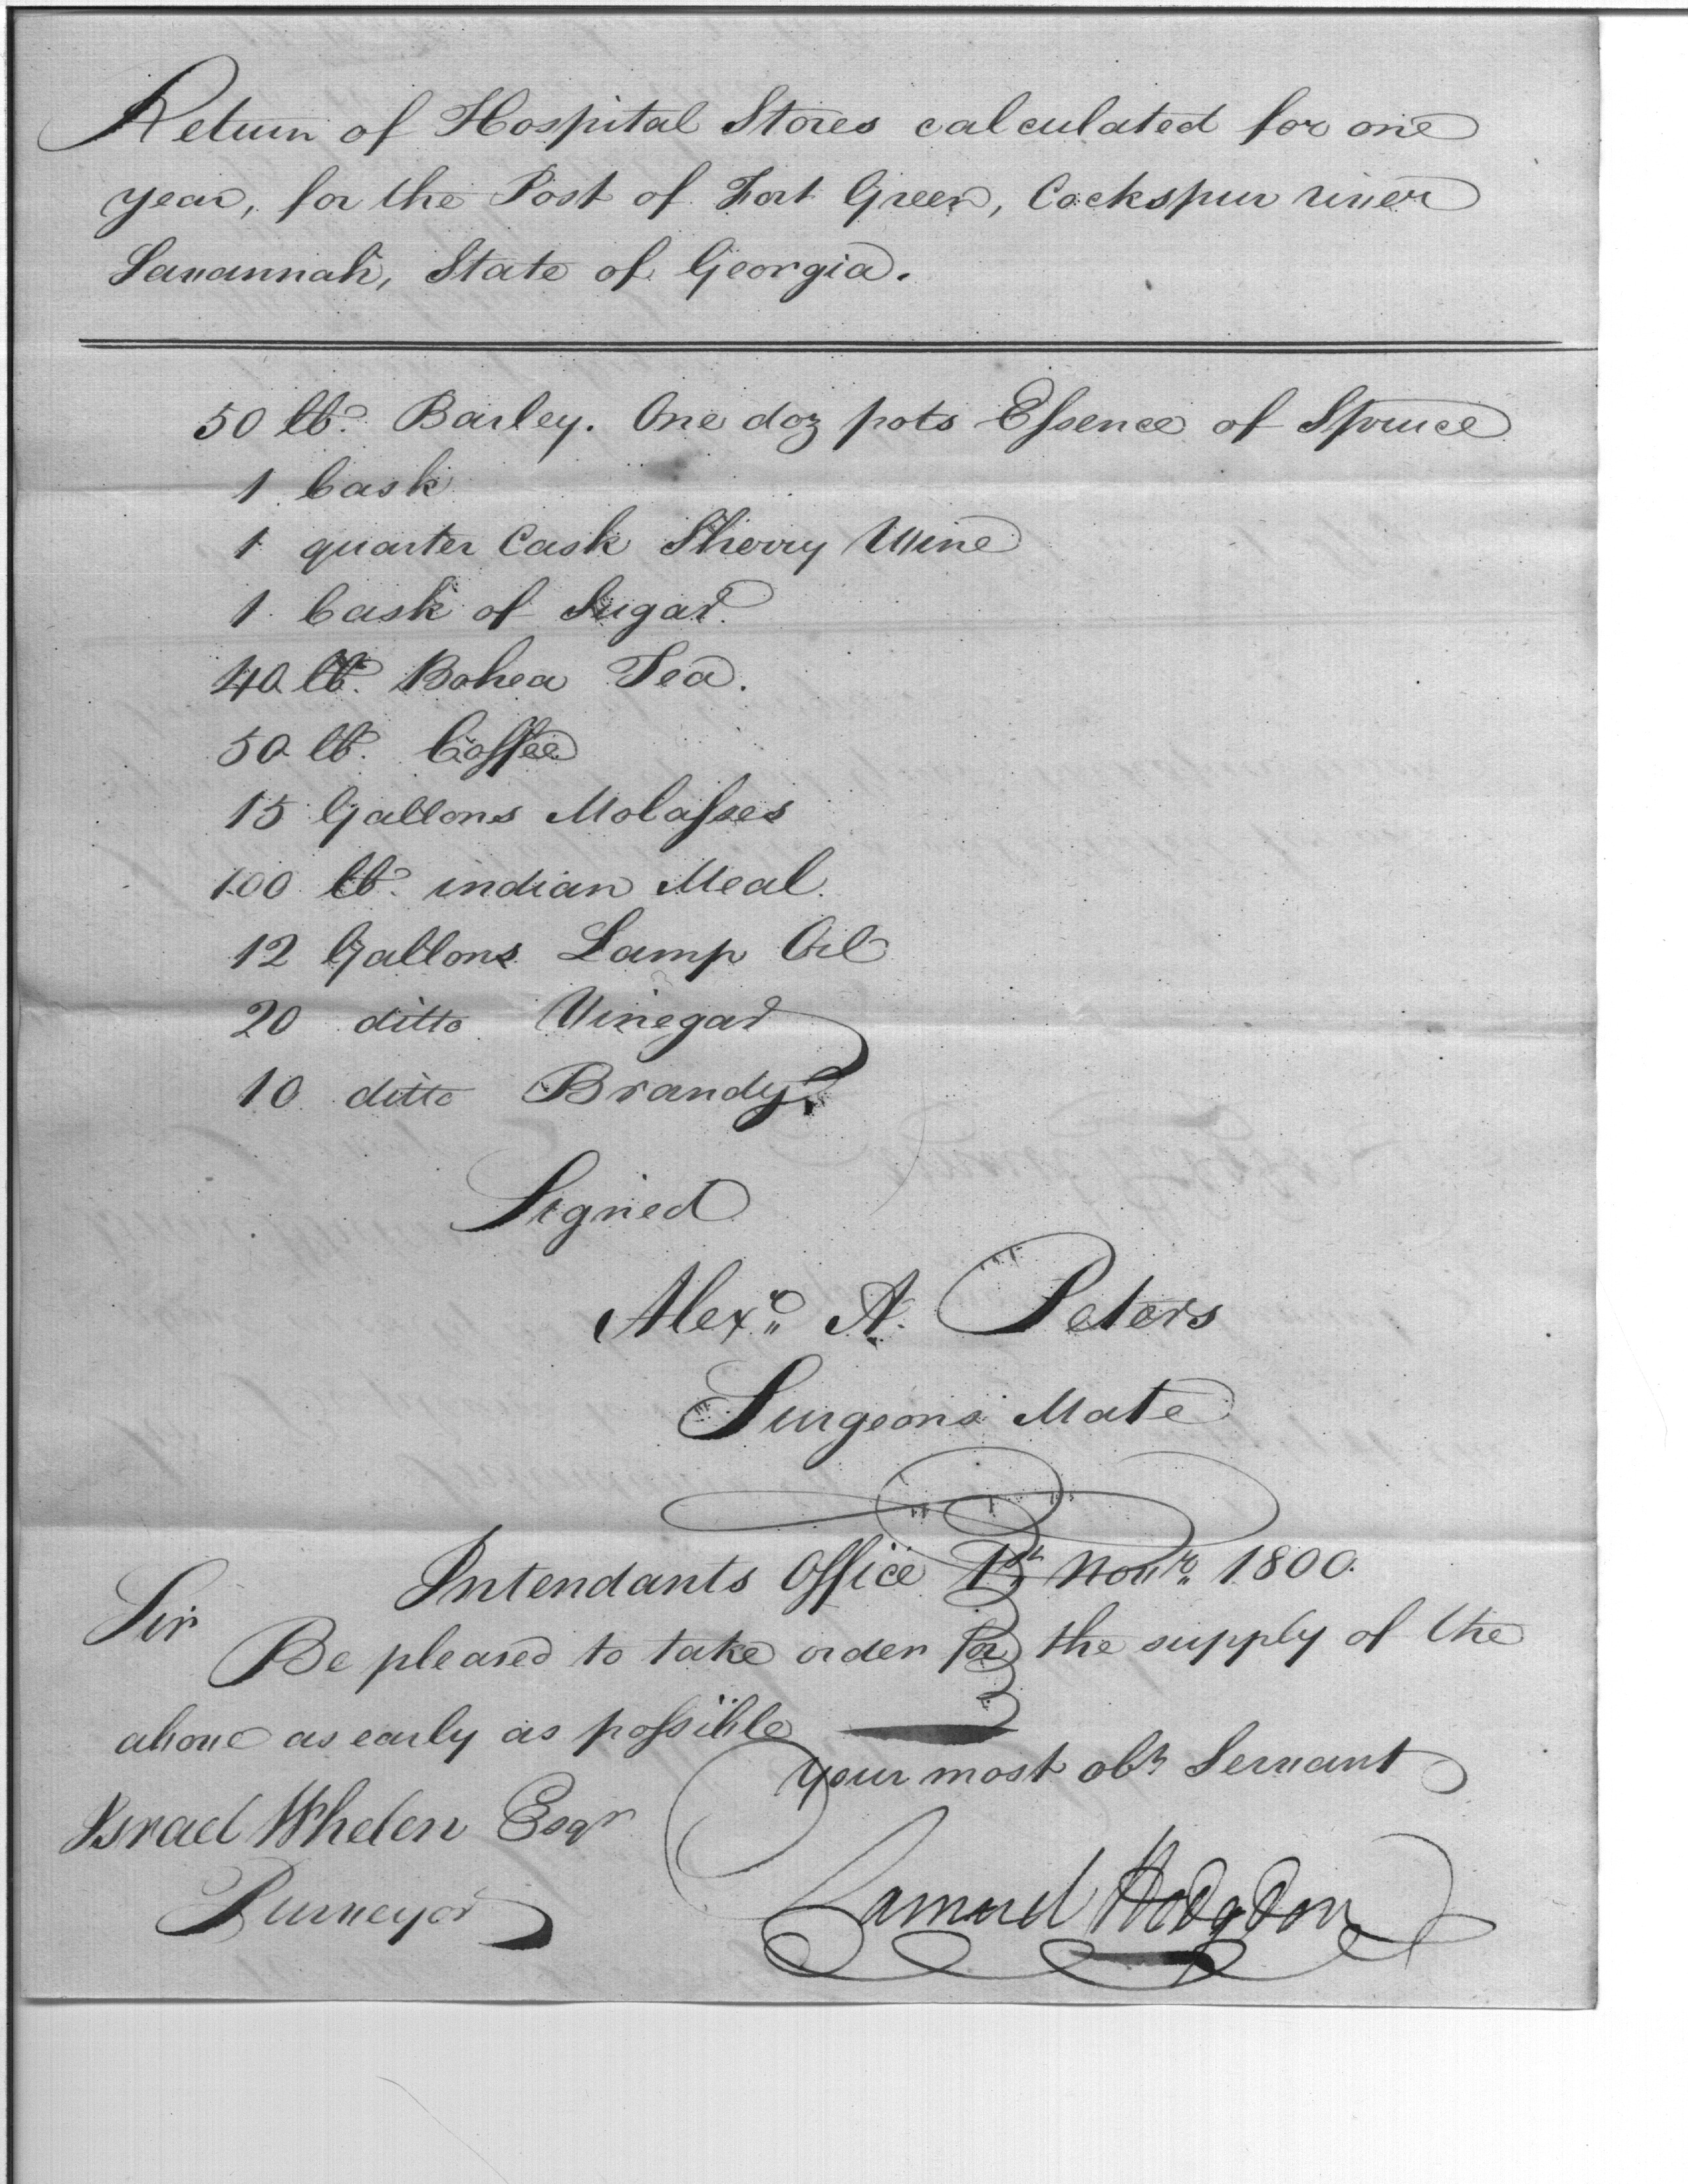 Return of Hospital Stores calculated for one
year, for the Post of Fort Green, Cockspur river
Savannah, State of Georgia.
50 lb. Barley. One doz pots Essence of Spruce
1 Cask
1 quarter Cask Sherry Wine
1 Cask of Sugar.
40 lb. Bohea Tea.
50 lb. Coffee
15 Gallons Molasses
100 lb. indian Meal.
12 Gallons Lamp Oil
20 ditto Vinegar
10 ditto Brandy.
Signed
Alexr. A. Peters
Surgeons Mate
Intendants Office 1st Novr. 1800.
Sir
Be pleased to take order for the supply of the
above as early as possible
your most obt Servant
Israel Whelen Esqr
Samuel Hodgdon
Purveyor